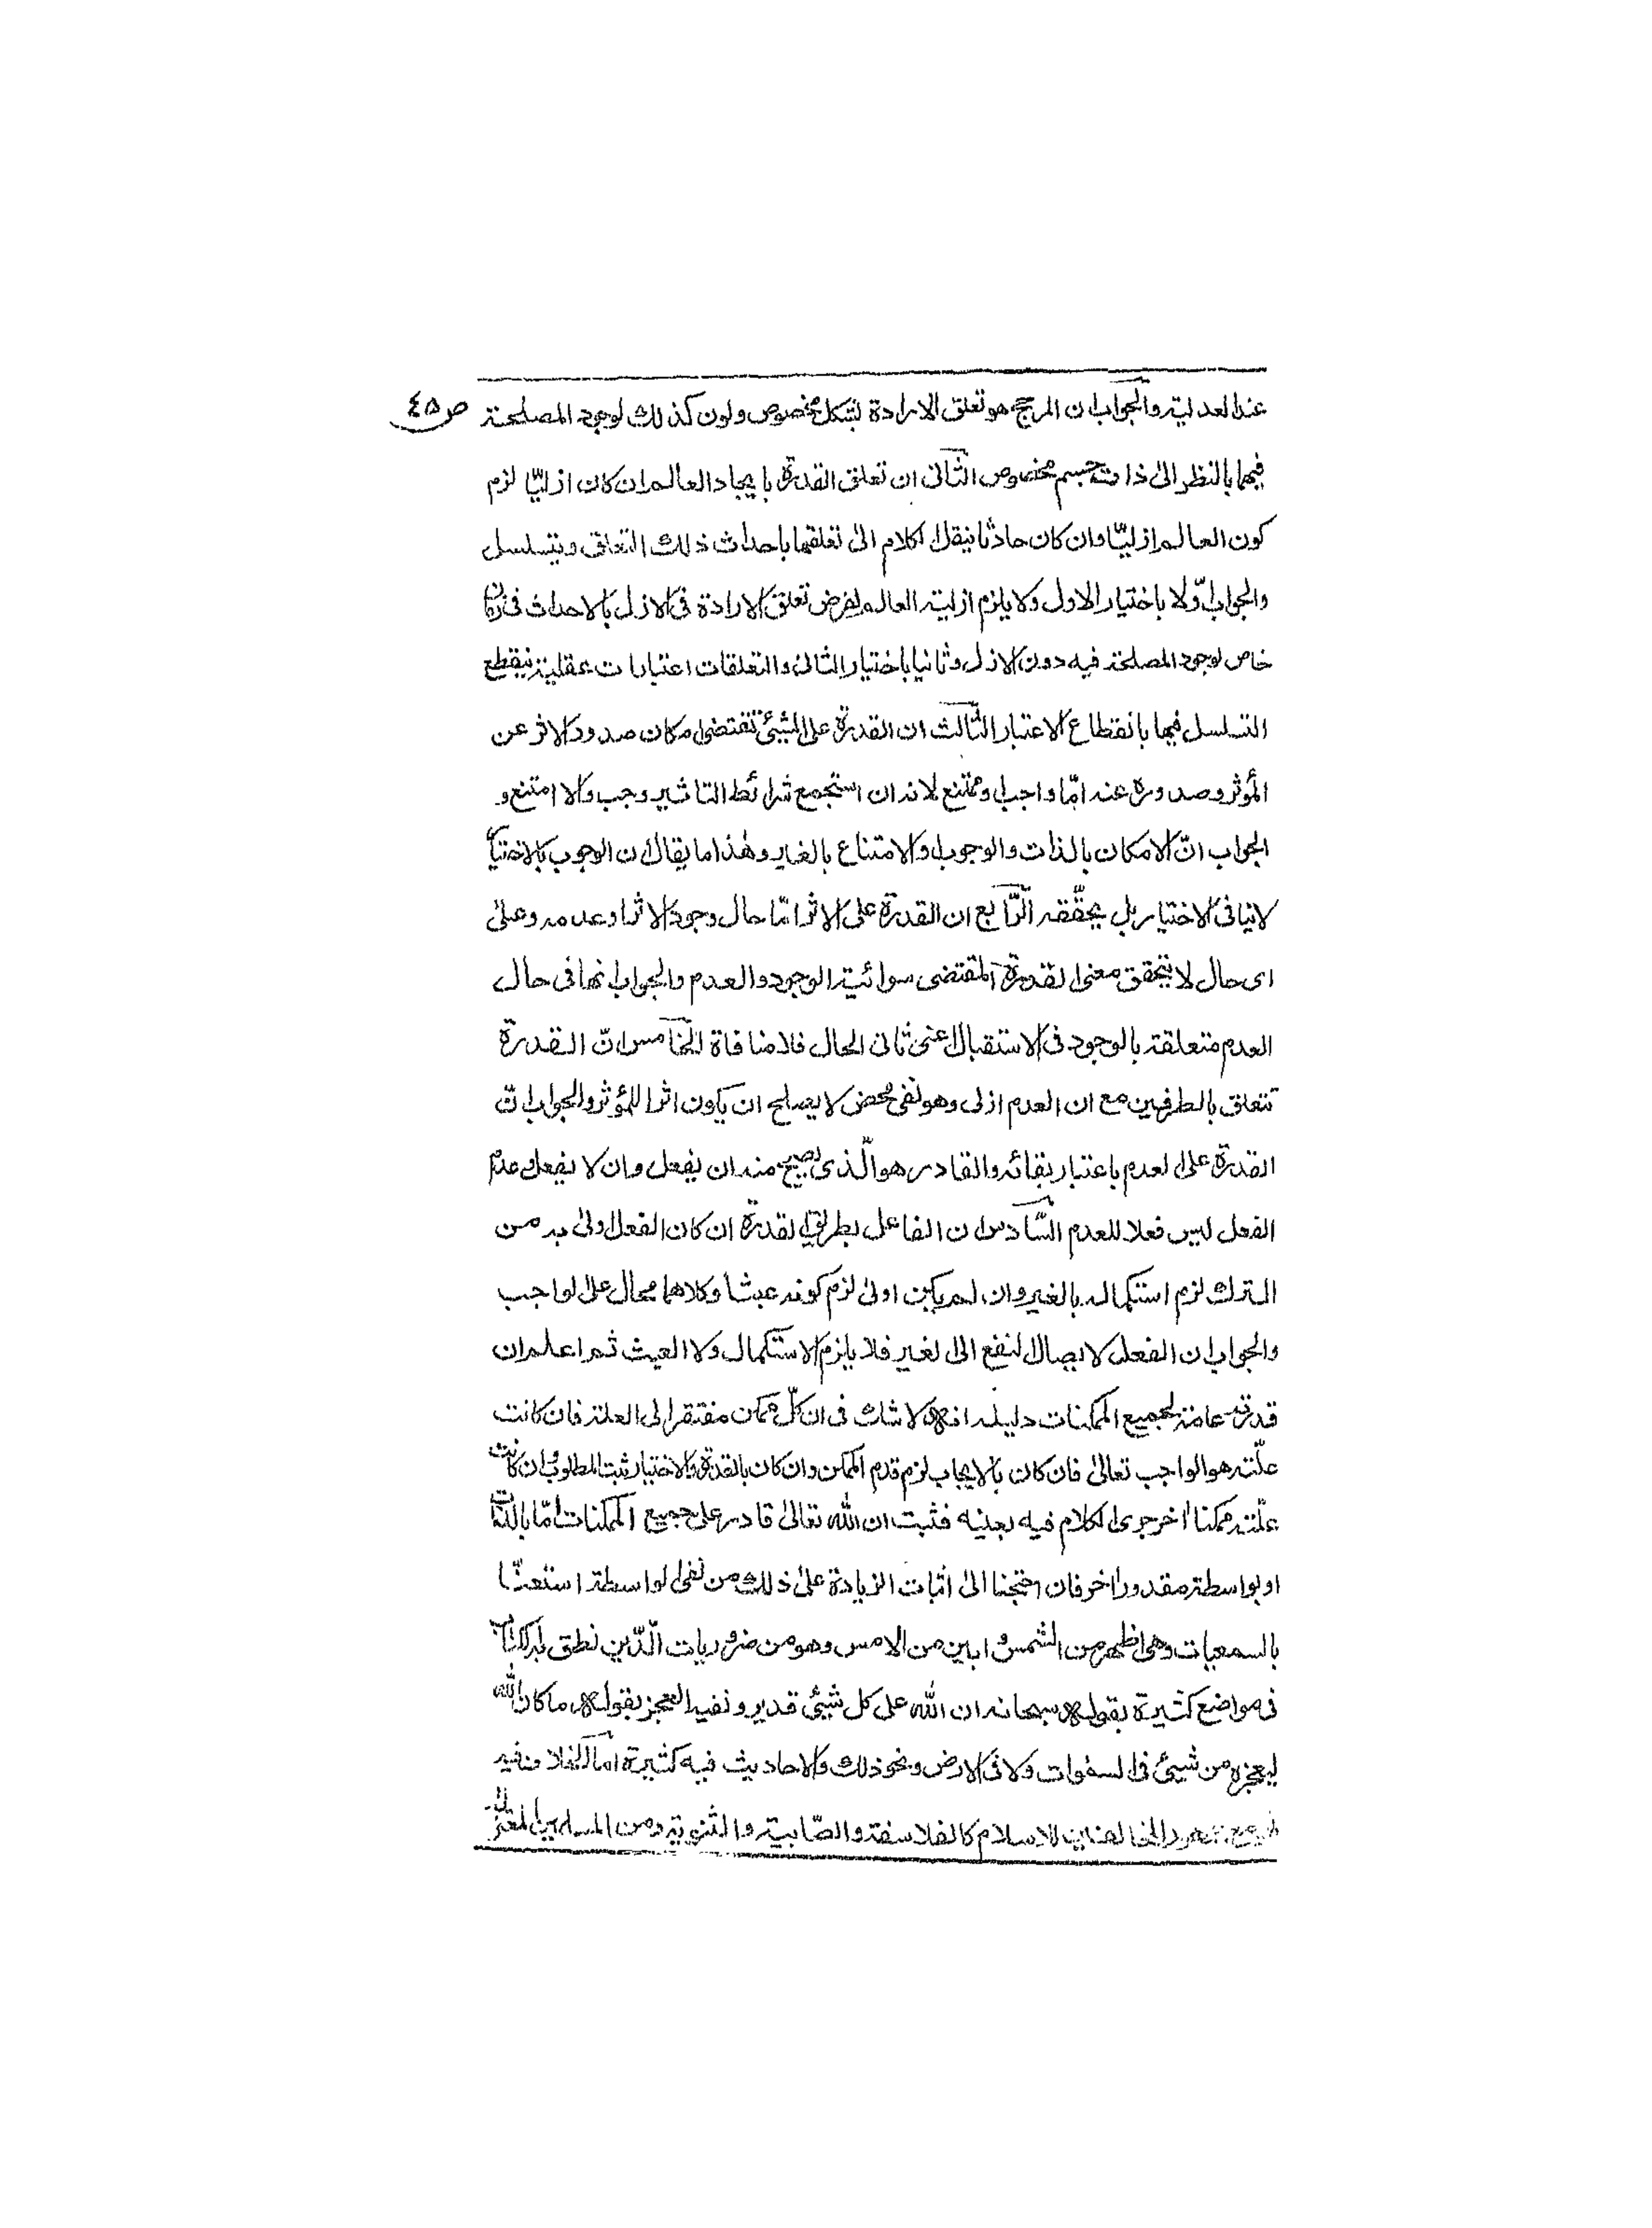 ص ٤٥
عند العدلية والجواب ان المرجح هو تعلق الارادة بشكل مخصوص ولون كذلك لوجود المصلحة
فيهما بالنظر الى ذات جسم مخصوص الثانى ان تعلق القدرة بايجاد العالم ان كان ازليّا لزم
كون العالم ازليّا وان كان حادثا ينقل الكلام الى تعلقها باحداث ذلك التعلق ويتسلسل
والجواب اوّلا باختيار الاول ولا يلزم ازلية العالم لفرض تعلق الارادة فى الازل بالاحداث فى زمان
خاص لوجود المصلحة فيه دون الازل وثانيا باختيار الثانى والتعلقات اعتبارات عقلية ينقطع
التسلسل فيها بانقطاع الاعتبار الثالث ان القدرة على الشيئ تقتضى امكان صدور الاثر عن
المؤثر وصدوره عنه امّا واجب او ممتنع لانه ان استجمع شرائط التاثير وجب والا امتنع و
الجواب انّ الامكان بالذات والوجوب والامتناع بالغير وهذا ما يقال ان الوجوب بالاختيار
لاينافى الاختيار بل يحقّقه الرّابع ان القدرة على الاثر امّا حال وجود الاثر او عدمه وعلى
اى حال لا يتحقق معنى القدرة المقتضى سوائية الوجود والعدم والجواب انها فى حال
العدم متعلقة بالوجود فى الاستقبال اعنى ثانى الحال فلا منافاة الخامس انّ القدرة
تتعلق بالطرفين مع ان العدم ازلى وهو نفى محض لا يصلح ان يكون اثرا للمؤثر والجواب انّ
القدرة على العدم باعتبار بقائه والقادر هو الّذى يصح منه ان يفعل وان لا يفعل وعدم
الفعل ليس فعلا للعدم السّادس ان الفاعل بطريق القدرة ان كان الفعل اولى به من
الترك لزم استكماله بالغير وان لم يكن اولى لزم كونه عبثا وكلاهما محال على الواجب
والجواب ان الفعل لايصال النفع الى الغير فلا يلزم الاستكمال ولا العبث ثم اعلم ان
قدرته عامة لجميع الممكنات دليله انه لا شك فى ان كلّ ممكن مفتقر الى العلة فان كانت
علّته هو الواجب تعالى فان كان بالايجاب لزم قدم الممكن وان كان بالقدرة والاختيار ثبت المطلوب وان كانت
علّته ممكنا اخر جرى الكلام فيه بعينه فثبت ان الله تعالى قادر على جميع الممكنات امّا بالذات
او بواسطة مقدور اخر فان احتجنا الى اثبات الزيادة على ذلك من نفى الواسطة استعنّا
بالسمعيات وهى اظهر من الشمس وابين من الامس وهو من ضروريات الدّين نطق به الكتاب
فى مواضع كثيرة بقوله سبحانه ان الله على كل شيئ قدير ونفيه العجز بقوله ما كان الله
ليعجزه من شيئ فى السموات ولا فى الارض ونحو ذلك والاحاديث فيه كثيرة اما الخلاف فيه
المخالفين للاسلام كالفلاسفة والصّابية والثنوية ومن المسلمين المعتزلة